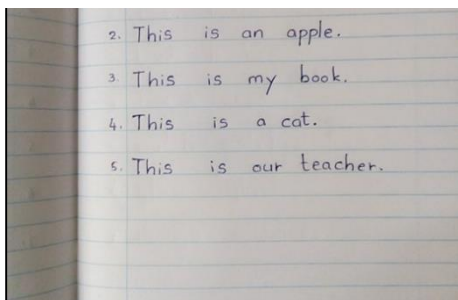 2. This is an apple.
3. This is my book.
4. This is a cat.
5. This is our teacher.